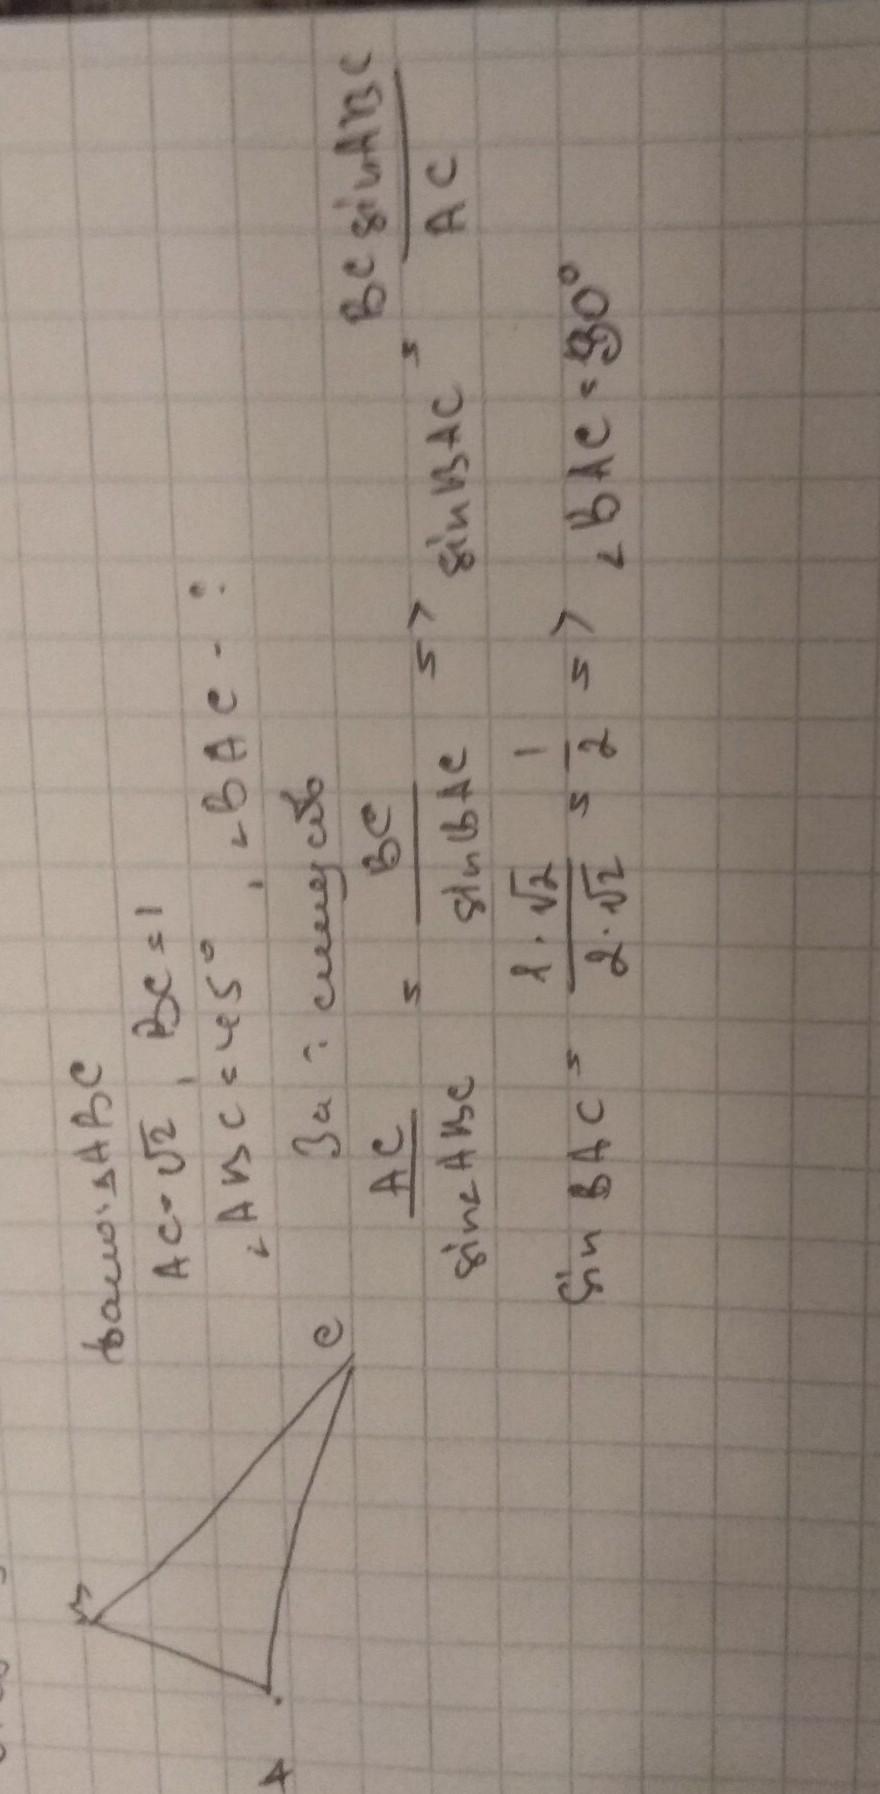 Дано: ΔABC
AC = √2, BC = 1
∠ABC = 45°, ∠BAC - ?
B
A
C
За т. синусів
AC / sin∠ABC = BC / sin BAC => sin BAC = BC sin ABC / AC
sin BAC = 1·√2 / 2·√2 = 1/2 => ∠BAC = 30°